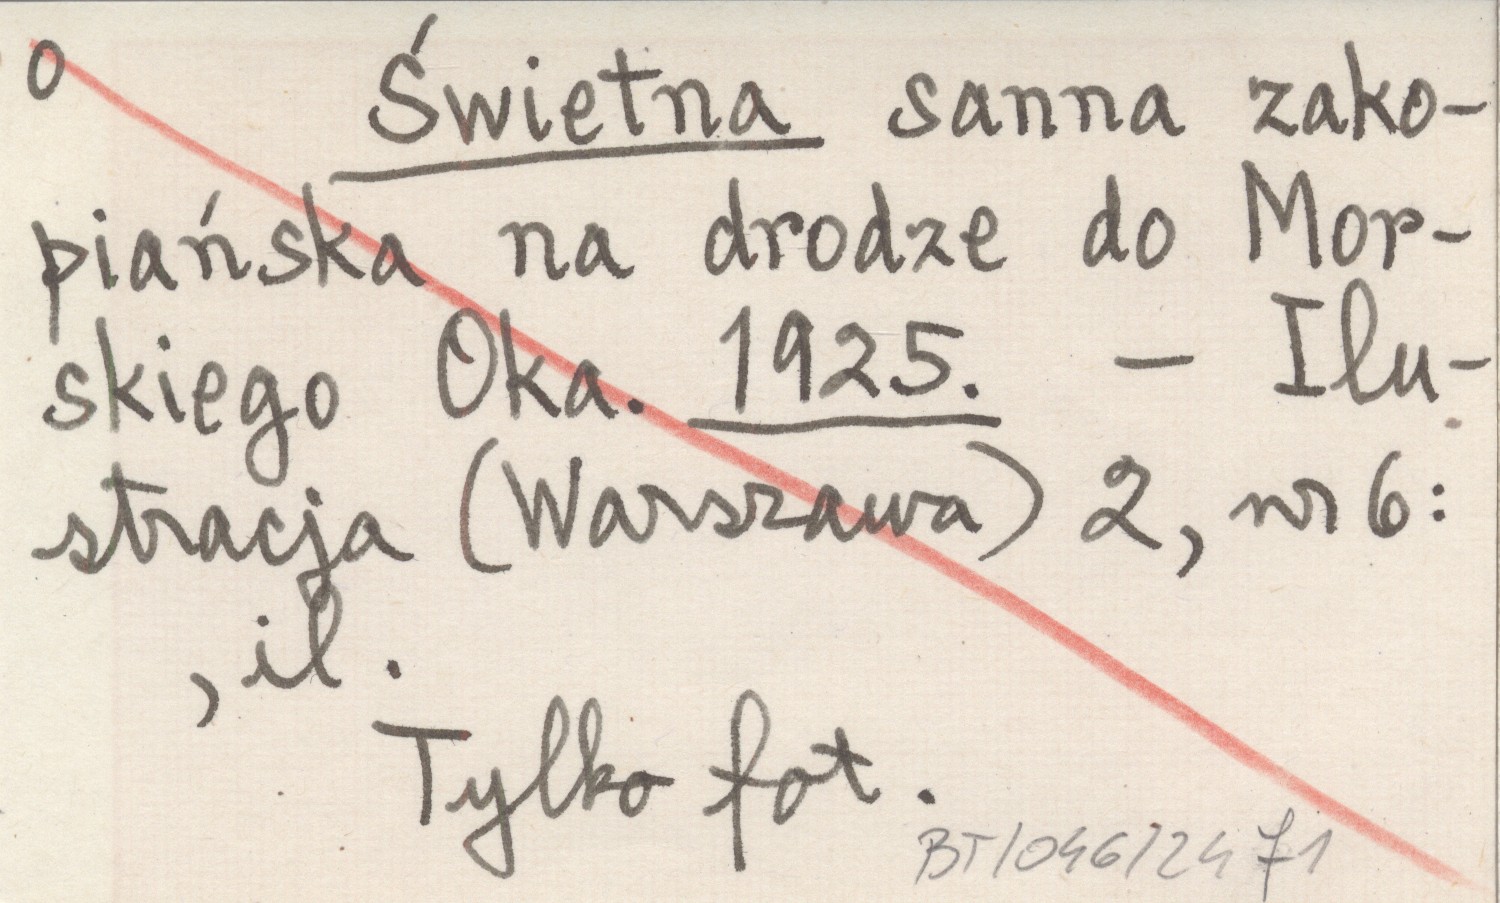 o Świetna sanna zako-
piańska na drodze do Mor-
skiego Oka. 1925. – Ilu-
stracja (Warszawa) 2, nr 6:
, il.
Tylko fot.
BT/046/24 71